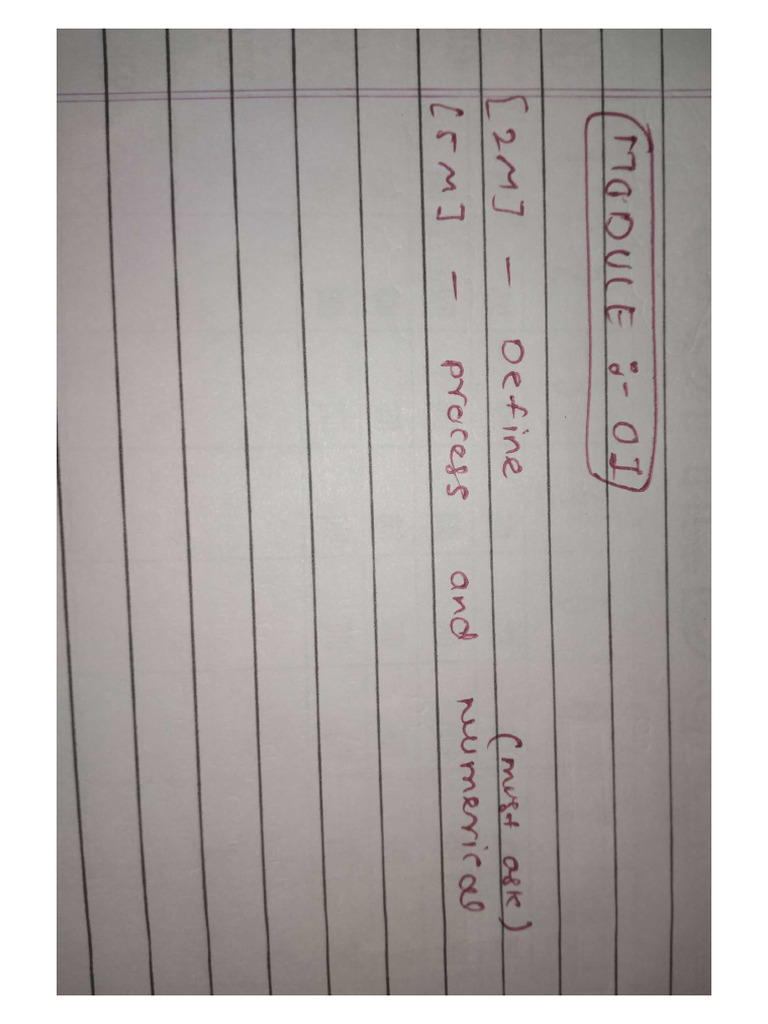 MODULE :- 01
[2M] - Define
(must ask)
[5M] - process and numerical